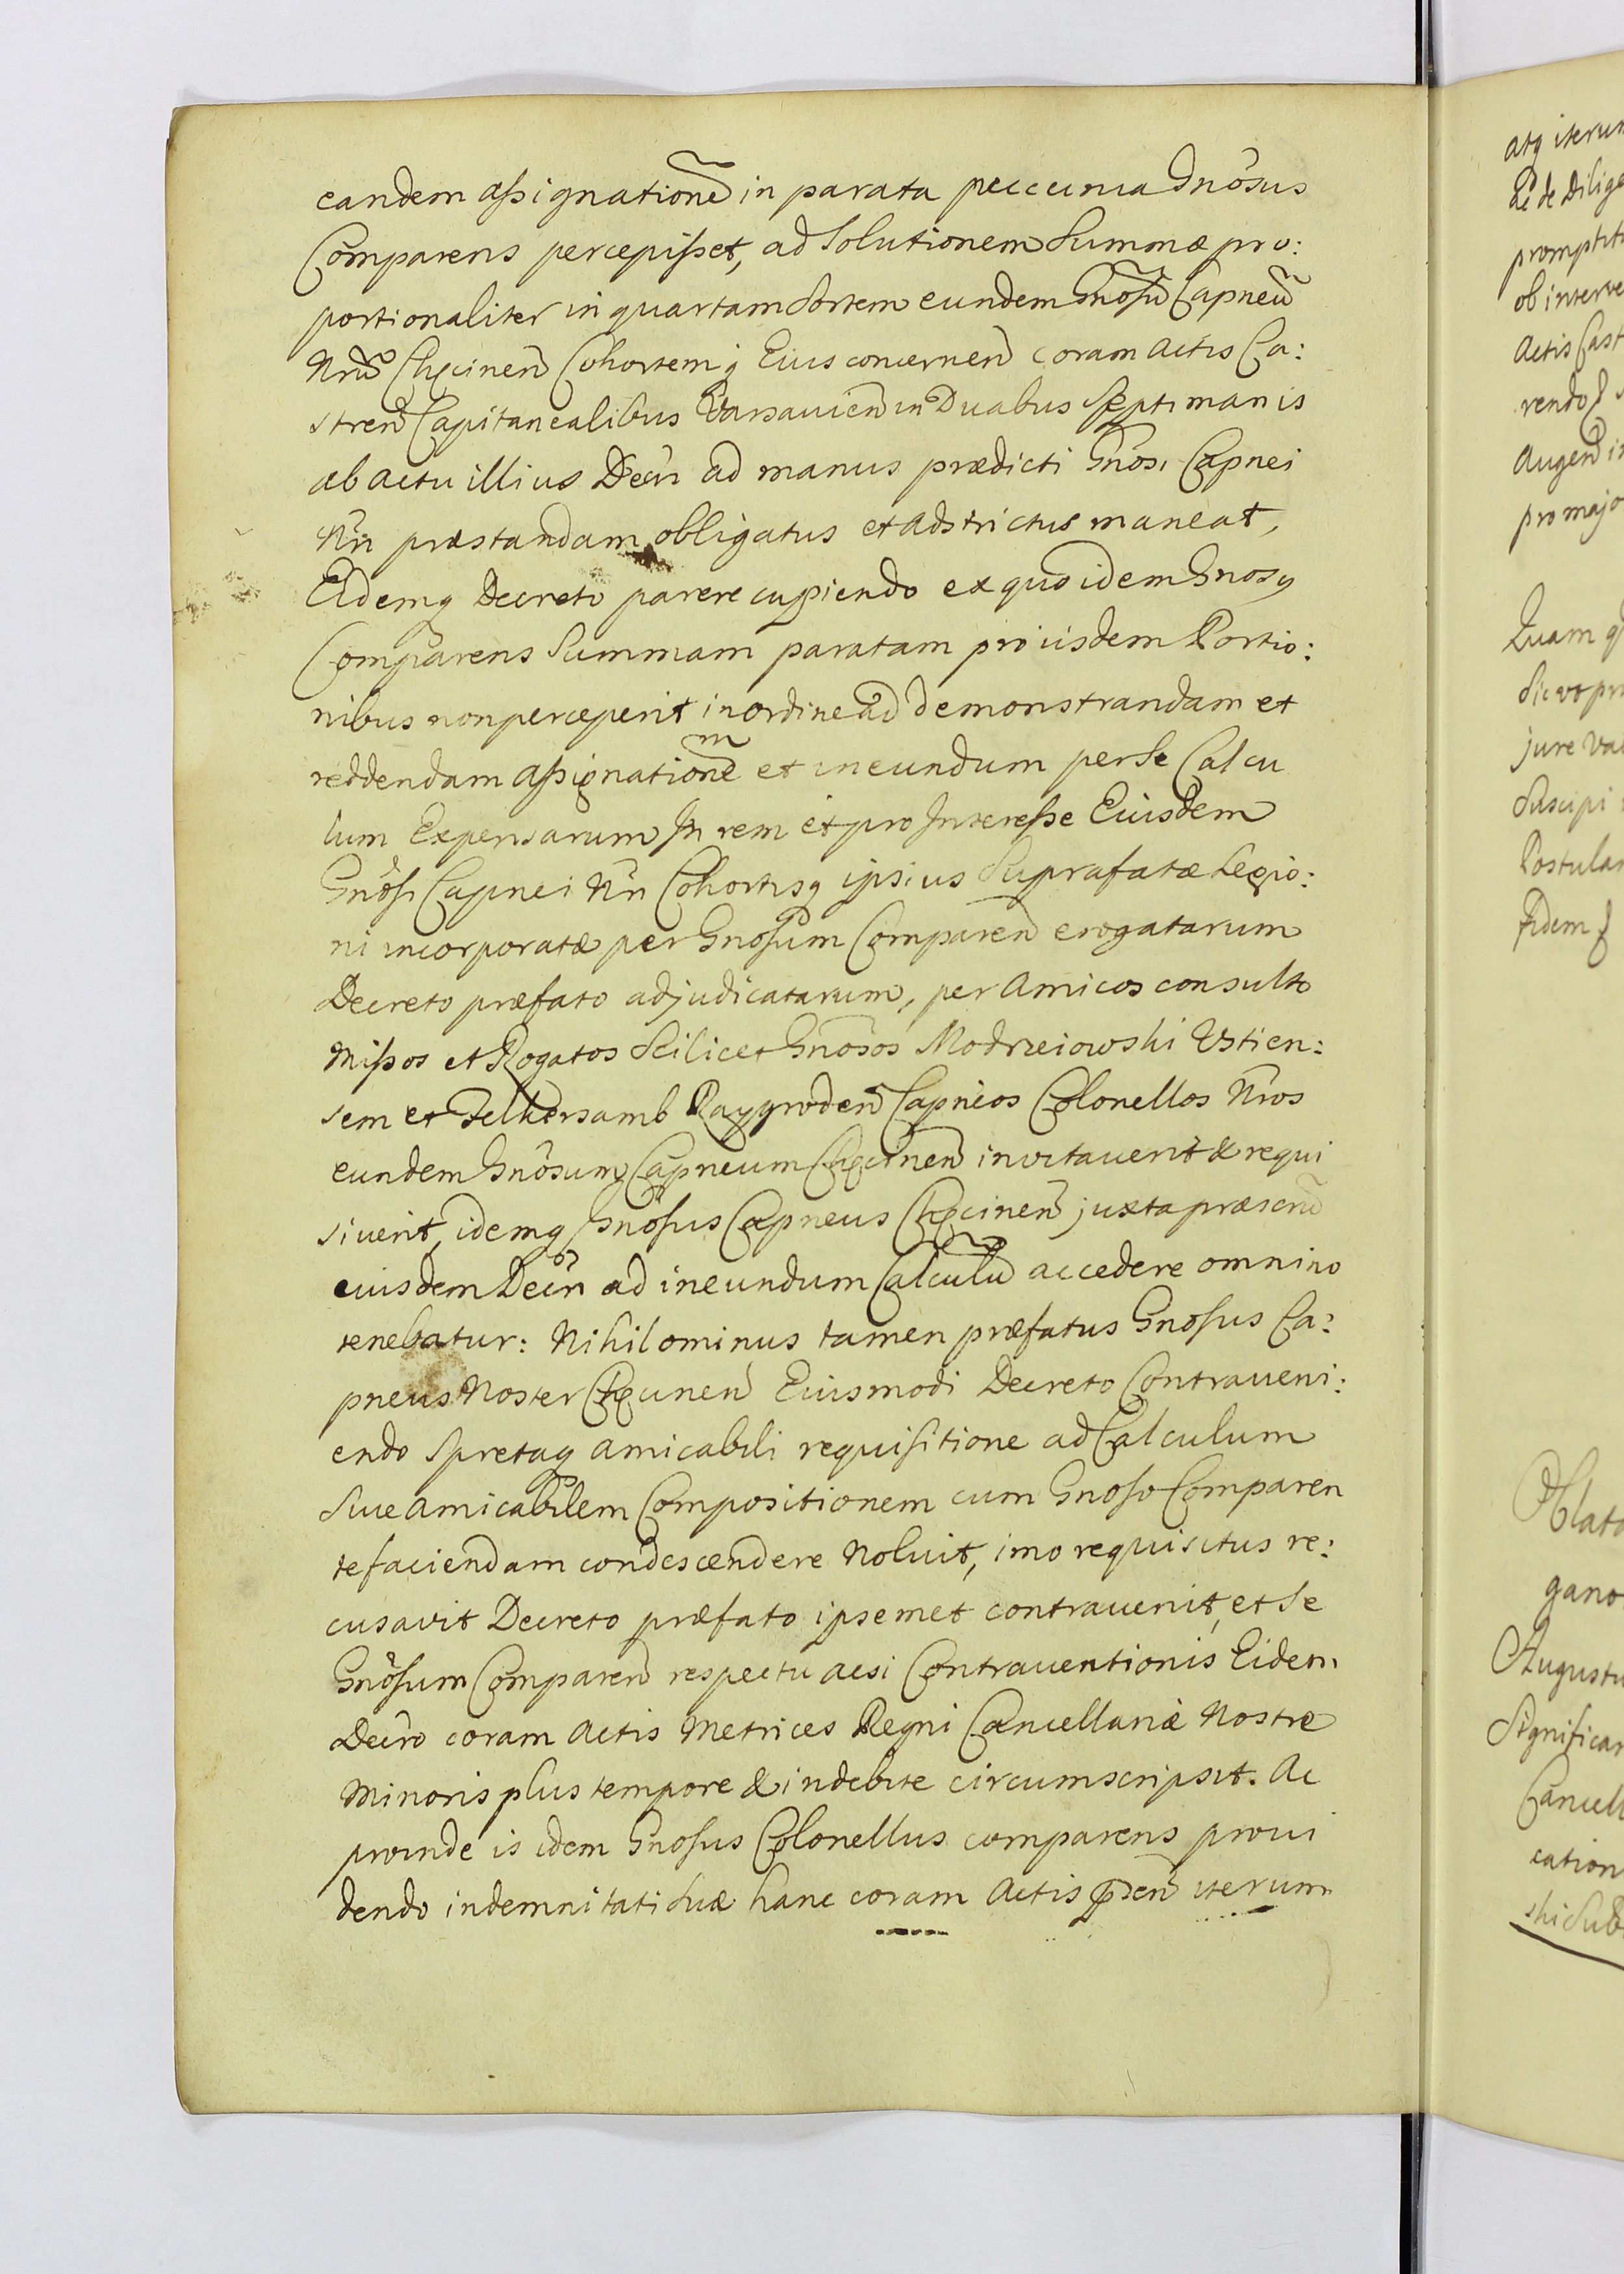 eandem assignatione in parata peccunia Gnosus
Comparens percepisset, ad Solutionem Summæ pro:
portionaliter in quartam Sortem eundem Gnosu Capneu
Nru Chęcinen Cohortemq Eius concernen coram Actis Ca:
stren Capitanealibus Varsavien in Duabus Septimanis
ab actu illius Decr ad manus prædicti Gnosi Capnei
Nri præstandam obligatus et adstrictus maneat,
Eidemq Decreto parere cupiendo ex quo idem Gnosq
Comparens Summam paratam pro iisdem Portio:
nibus non perceperit in ordine ad demonstrandam et
reddendam assignatione et ineundum per se Calcu
lum Expensarum In rem et pro Interesse Eiusdem
Gnosi Capnei Nri Cohortisq ipsius Suprafatæ Legio:
ni incorporatæ per Gnosum Comparen erogatarum
Decreto præfato adjudicatarum, per Amicos consulto
Missos et Rogatos Scilicet Gnosos Modrzeiowski Ustien:
sem et Felkersamb Raygroden Capneos Colonellos Nros
eundem Gnosum Capneum Chęcinen invitaverit & requi
siverit, idemq Gnosus Capneus Chęcinen juxta præscrið
eiusdem Decri ad ineundum Calculu accedere omnino
tenebatur: Nihilominus tamen præfatus Gnosus Ca:
pneus Noster Chęcinen Eiusmodi Decreto Contraveni:
endo Spretaq amicabili requisitione ad Calculum
Sive amicabilem Compositionem cum Gnoso Comparen
te faciendam condescendere Noluit, imo requisitus re:
cusavit Decreto præfato ipsemet contravenit, et Se
Gnosum Comparen respectu acsi Contraventionis Eidem
Decro coram Actis Metrices Regni Cancellariæ Nostræ
Minoris plus tempore & indebite circumscripsit. Ac
proinde is idem Gnosus Colonellus comparens provi
dendo indemnitati Suæ hanc coram Actis præn iterum
atq iterum
ac de Dilige
promptit
ob interve
Actis Cast
rendo
Augen in
pro majo
Quam
Sic ut pr
jure va
Suscipi
Postular
fidem
Oblato
gano
Augustu
Significa
Cancell
cation
ski Sub